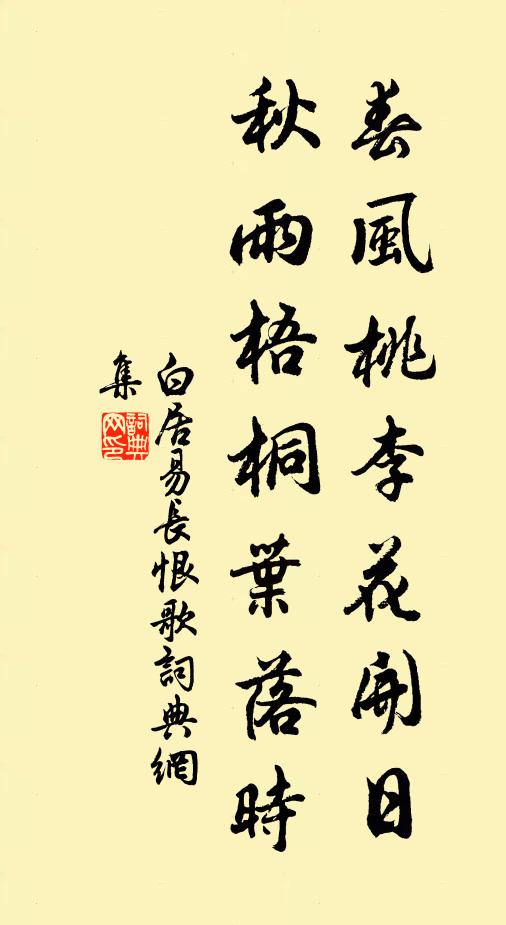 春風桃李花開日
秋雨梧桐葉落時
白居易長恨歌詞典網
集
詞典
网印